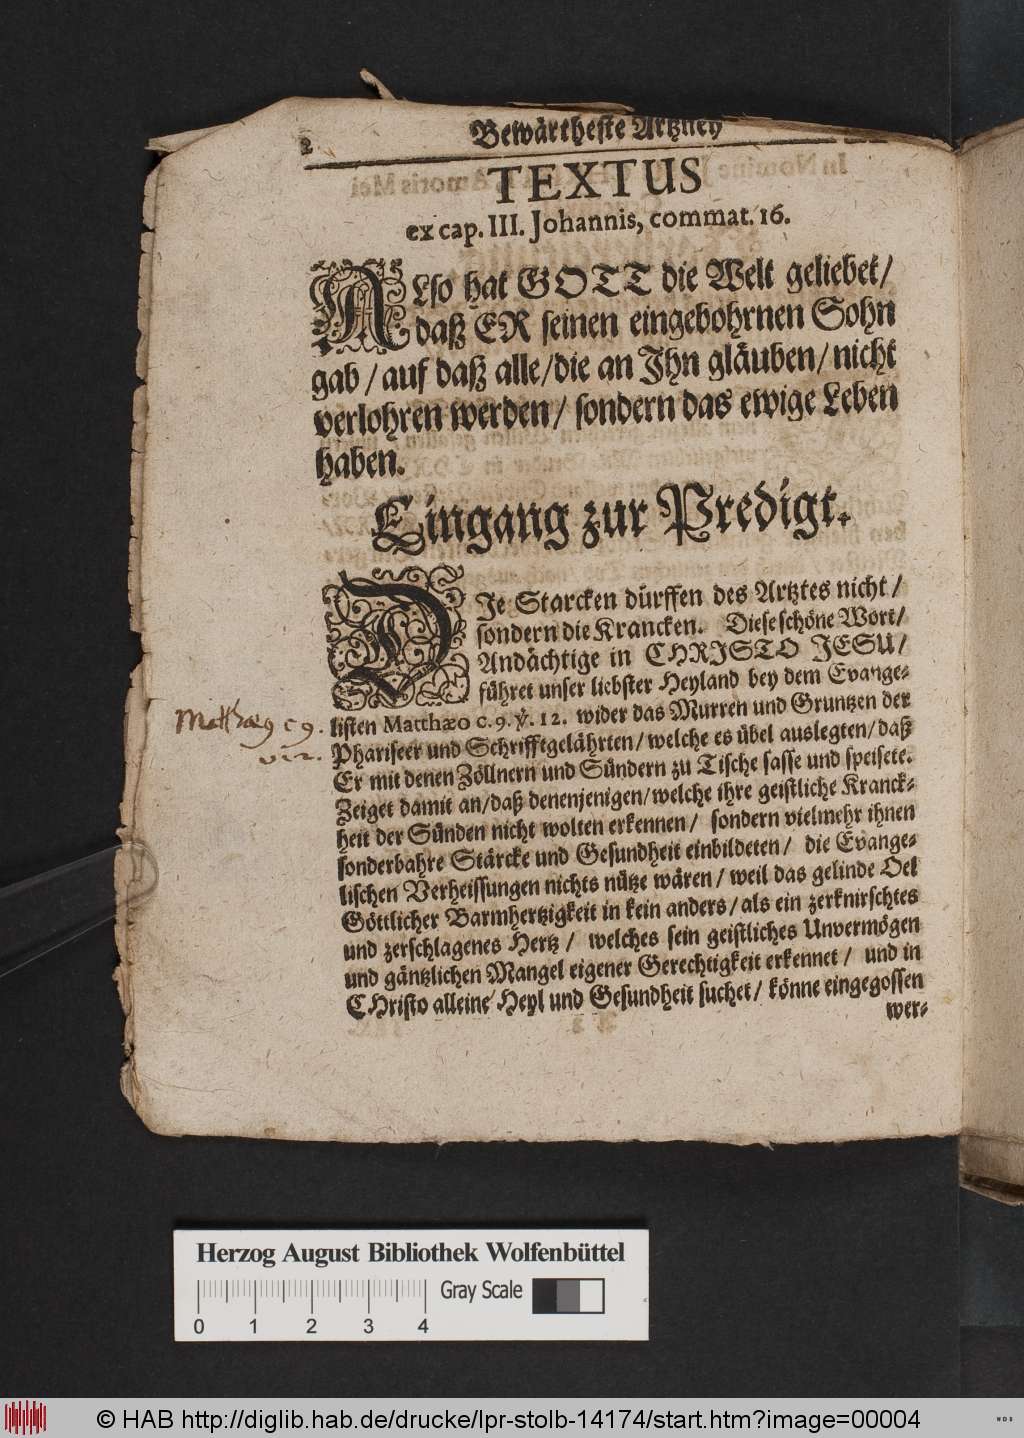 2
Bewärtheste Artzney
TEXTUS
ex cap. III. Johannis, commat. 16.
ALso hat GOTT die Welt geliebet/
daß ER seinen eingebohrnen Sohn
gab / auf daß alle/die an Jhn gläuben/ nicht
verlohren werden/ sondern das ewige Leben
haben.
Eingang zur Predigt.
DJe Starcken dürffen des Artztes nicht/
sondern die Krancken. Diese schöne Wort/
Andächtige in CHRJSTO JESU/
führet unser liebster Heyland bey dem Evange-
listen Matthæo c. 9. ℣. 12. wider das Murren und Gruntzen der
Phariseer und Schrifftgelährten/welche es übel auslegten/daß
Er mit denen Zöllnern und Sündern zu Tische sasse und speisete.
Zeiget damit an/daß denenjenigen/welche ihre geistliche Kranck-
heit der Sünden nicht wolten erkennen/ sondern vielmehr ihnen
sonderbahre Stärcke und Gesundheit einbildeten/ die Evange-
lischen Verheissungen nichts nütze wären/ weil das gelinde Oel
Göttlicher Barmhertzigkeit in kein anders/als ein zerknirschtes
und zerschlagenes Hertz/ welches sein geistliches Unvermögen
und gäntzlichen Mangel eigener Gerechtigkeit erkennet/ und in
CHristo alleine Heyl und Gesundheit suchet/ könne eingegossen
wer-
Matthæg c 9.
v 12.
Herzog August Bibliothek Wolfenbüttel
Gray Scale
0 1 2 3 4
© HAB http://diglib.hab.de/drucke/lpr-stolb-14174/start.htm?image=00004